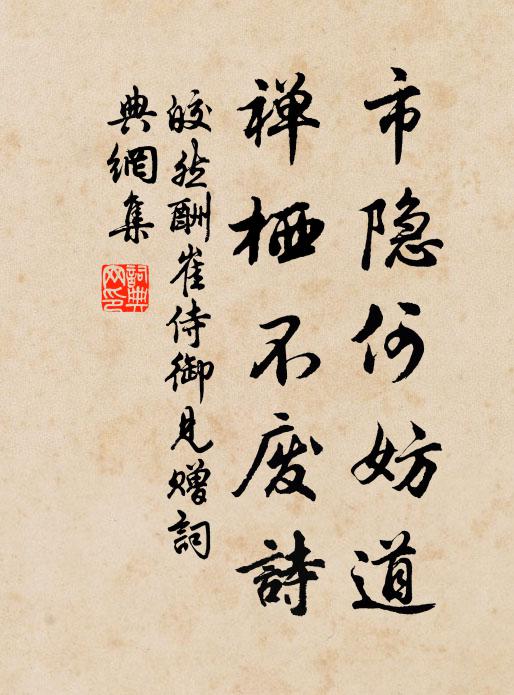 市隐何妨道
禅栖不废詩
皎然酬崔侍御見赠詞
典網集
詞典網印